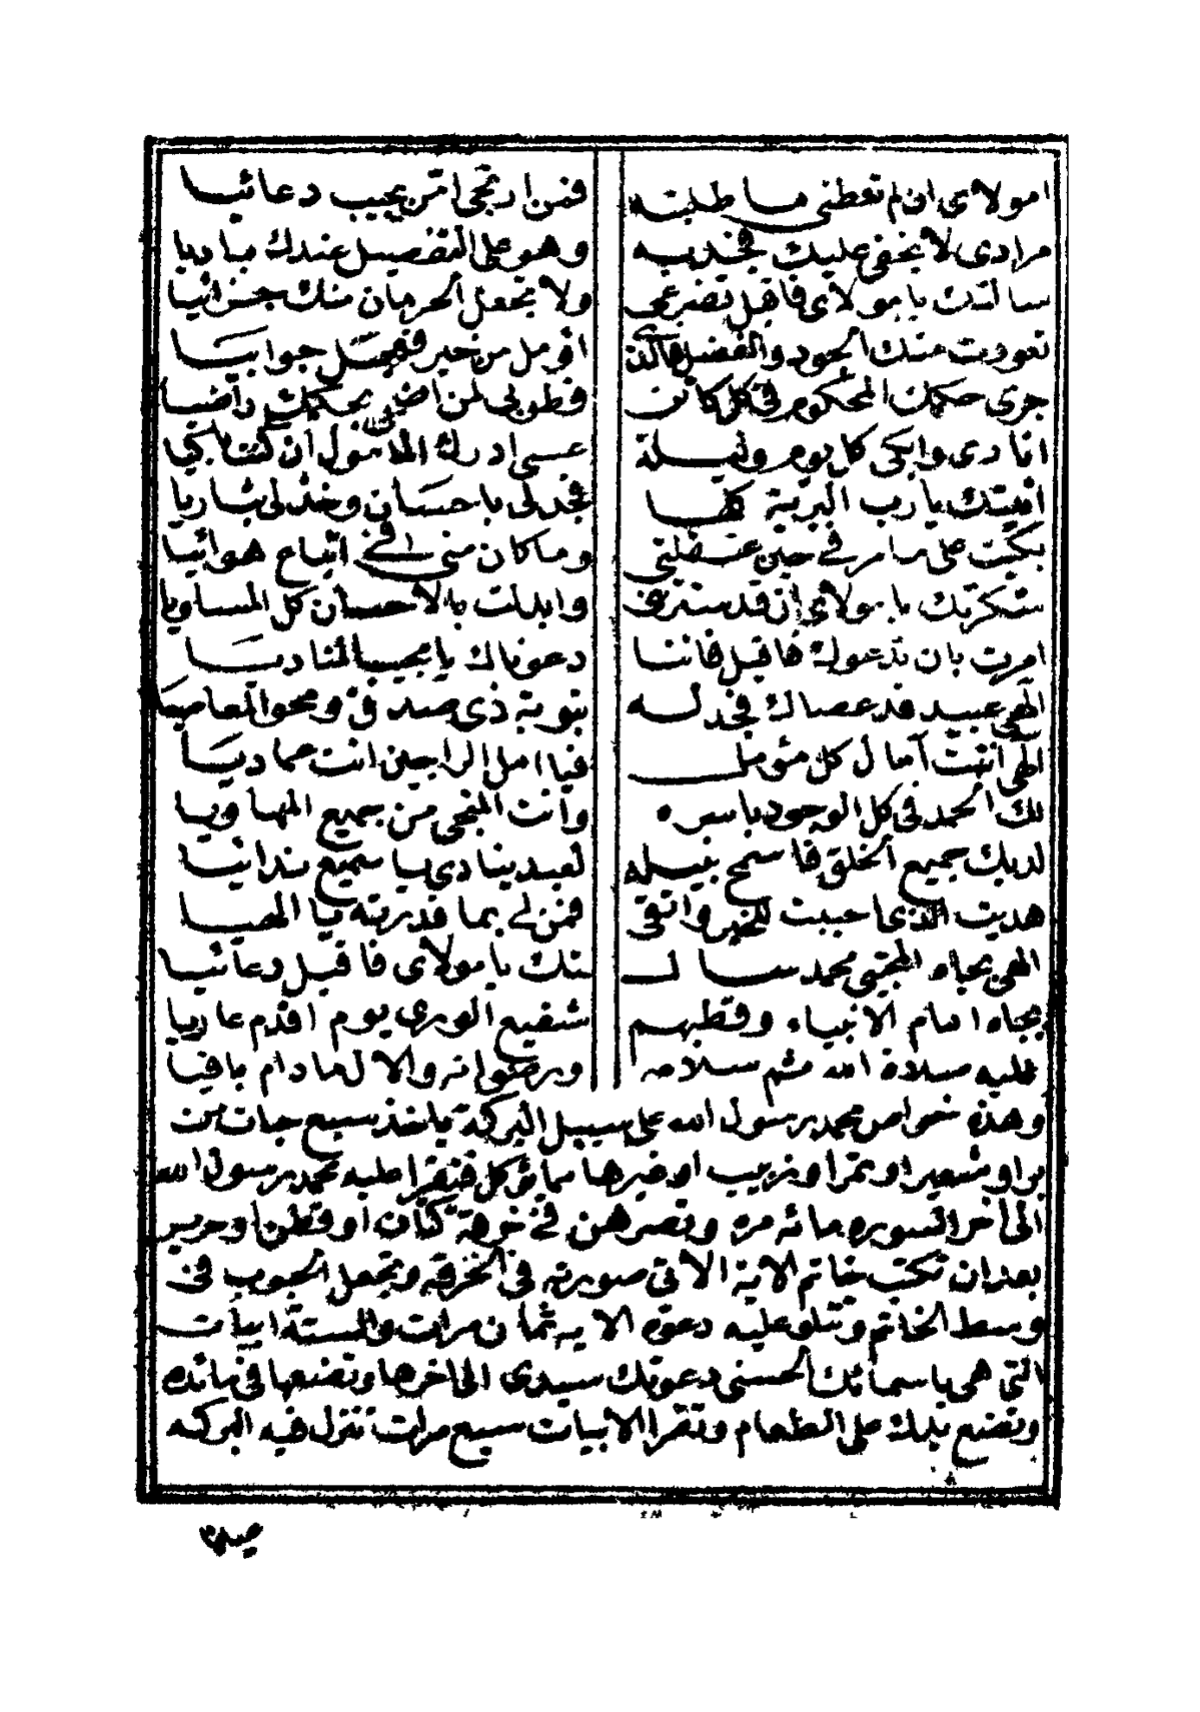 امولاى ان لم تعطنى ما طلبته فمن ارتجى امن يجيب دعائيا
مرادى لا يخفى عليك فجد به وهو على التفضيل عندك باديا
سالتك يا مولاى فاقبل تضرعى ولا تجعل الحرمان منك جزائيا
تعودت منك الجود والفضل اؤمل من خير فعجل جوابيا
جرى حكمك المحكوم فى كل كائن فطوبى لمن اضحى بحكمك راضيا
انادى وابكى كل يوم وليلة عسى ادرك المأمول ان كنت باكيا
اتيتك يارب البرية كلها فجد لى باحسان وخذ لى بثاريا
بكيت على ما مر فى حين غفلتى وما كان منى فى اتباع هوائيا
شكرتك يا مولاى ان قد سترتنى وابدلت بالاحسان كل المساويا
امرت بان ندعوك فاقبل فاننا دعوناك يا مجيب المناديا
الهى عبيد قد عصاك فجد له بتوبة ذى صدق ومحو المعاصيا
الهى انت آمال كل مؤمل فيا امل الراجين انت عماديا
لك الحمد فى كل الوجود باسره وانت المنجى من جميع المهاويا
لديك جميع الخلق فاسمح بنيله لعبد ينادى يا سميع ندائيا
هديت الذى احببت للخير واتقى فمن لى بما قدرته يا الهيا
الهى بجاه المجتبى محمد سالـ ـتك يا مولاى فاقبل دعائيا
بجاه امام الانبياء وقطبهم شفيع الورى يوم اقدم عاريا
عليه صلاة الله ثم سلامه ورضوانه والال ما دام باقيا
وهذه خواص محمد رسول الله على سبيل البركة ياخذ سبع حبات من
برا وشعير او تمر او زبيب او غيرها كل فتقرا عليه محمد رسول الله
الى اخر السوره مائه مره وتصرهن فى خرقة كتان او قطن او حرير
بعد ان تكتب خاتم الاية الاتى صورته فى الخرقه وتجعل الحبوب فى
وسط الخاتم وتتلو عليه دعوة الايه ثمان مرات والستة ابيات
التى هى باسمائك الحسنى دعوتك سيدى الى اخرها وتضعها فى مائده
وتضع يدك على الطعام وتقرا الابيات سبع مرات تنزل فيه البركه